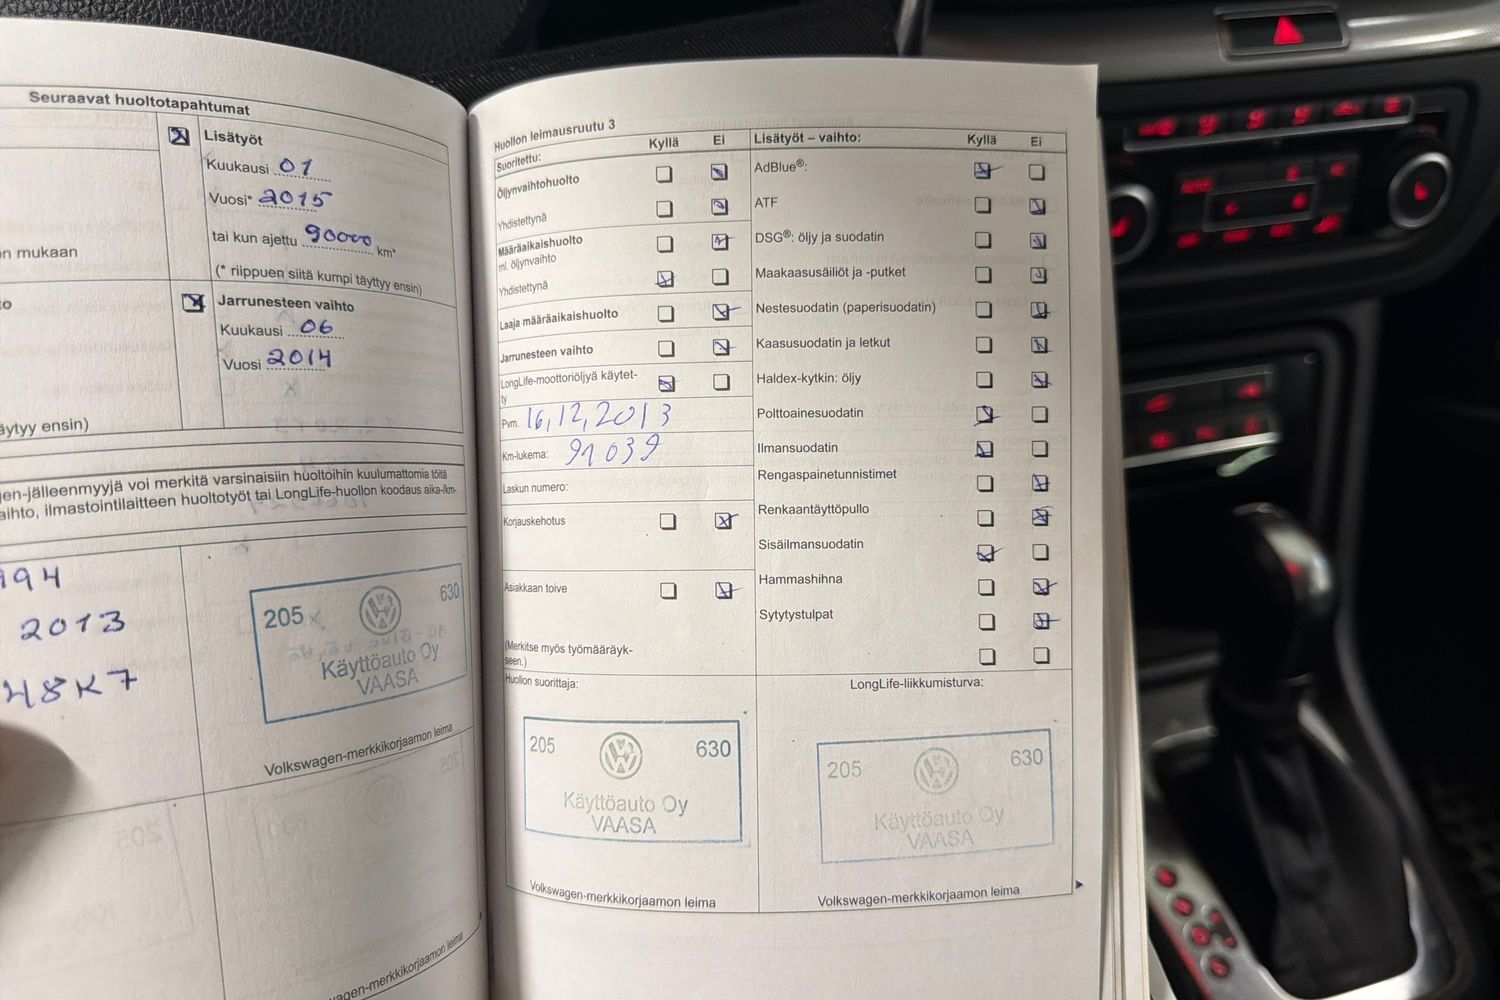 Seuraavat huoltotapahtumat
Lisätyöt
Kuukausi 01
Vuosi* 2015
tai kun ajettu 90000 km*
(* riippuen siitä kumpi täyttyy ensin)
mukaan
Jarrunesteen vaihto
Kuukausi 06
Vuosi 2014
äytyy ensin)
gen-jälleenmyyjä voi merkitä varsinaisiin huoltoihin kuulumattomia töitä
aihto, ilmastointilaitteen huoltotyöt tai LongLife-huollon koodaus aika-/km-
2013
48K7
205 630
Käyttöauto Oy
VAASA
Volkswagen-merkkikorjaamon leima
wagen-merkkikorjaamon leima
Huollon leimausruutu 3
Suoritettu: Kyllä Ei
Öljynvaihtohuolto
Yhdistettynä
Määräaikaishuolto
ml. öljynvaihto
Yhdistettynä
Laaja määräaikaishuolto
Jarrunesteen vaihto
LongLife-moottoriöljyä käytet-
ty
Pvm. 16,12,2013
Km-lukema: 91039
Laskun numero:
Korjauskehotus
Asiakkaan toive
(Merkitse myös työmääräyk-
seen.)
Huollon suorittaja:
205 630
Käyttöauto Oy
VAASA
Volkswagen-merkkikorjaamon leima
Lisätyöt – vaihto: Kyllä Ei
AdBlue®:
ATF
DSG®: öljy ja suodatin
Maakaasusäiliöt ja -putket
Nestesuodatin (paperisuodatin)
Kaasusuodatin ja letkut
Haldex-kytkin: öljy
Polttoainesuodatin
Ilmansuodatin
Rengaspainetunnistimet
Renkaantäyttöpullo
Sisäilmansuodatin
Hammashihna
Sytytystulpat
LongLife-liikkumisturva:
205 630
Käyttöauto Oy
VAASA
Volkswagen-merkkikorjaamon leima